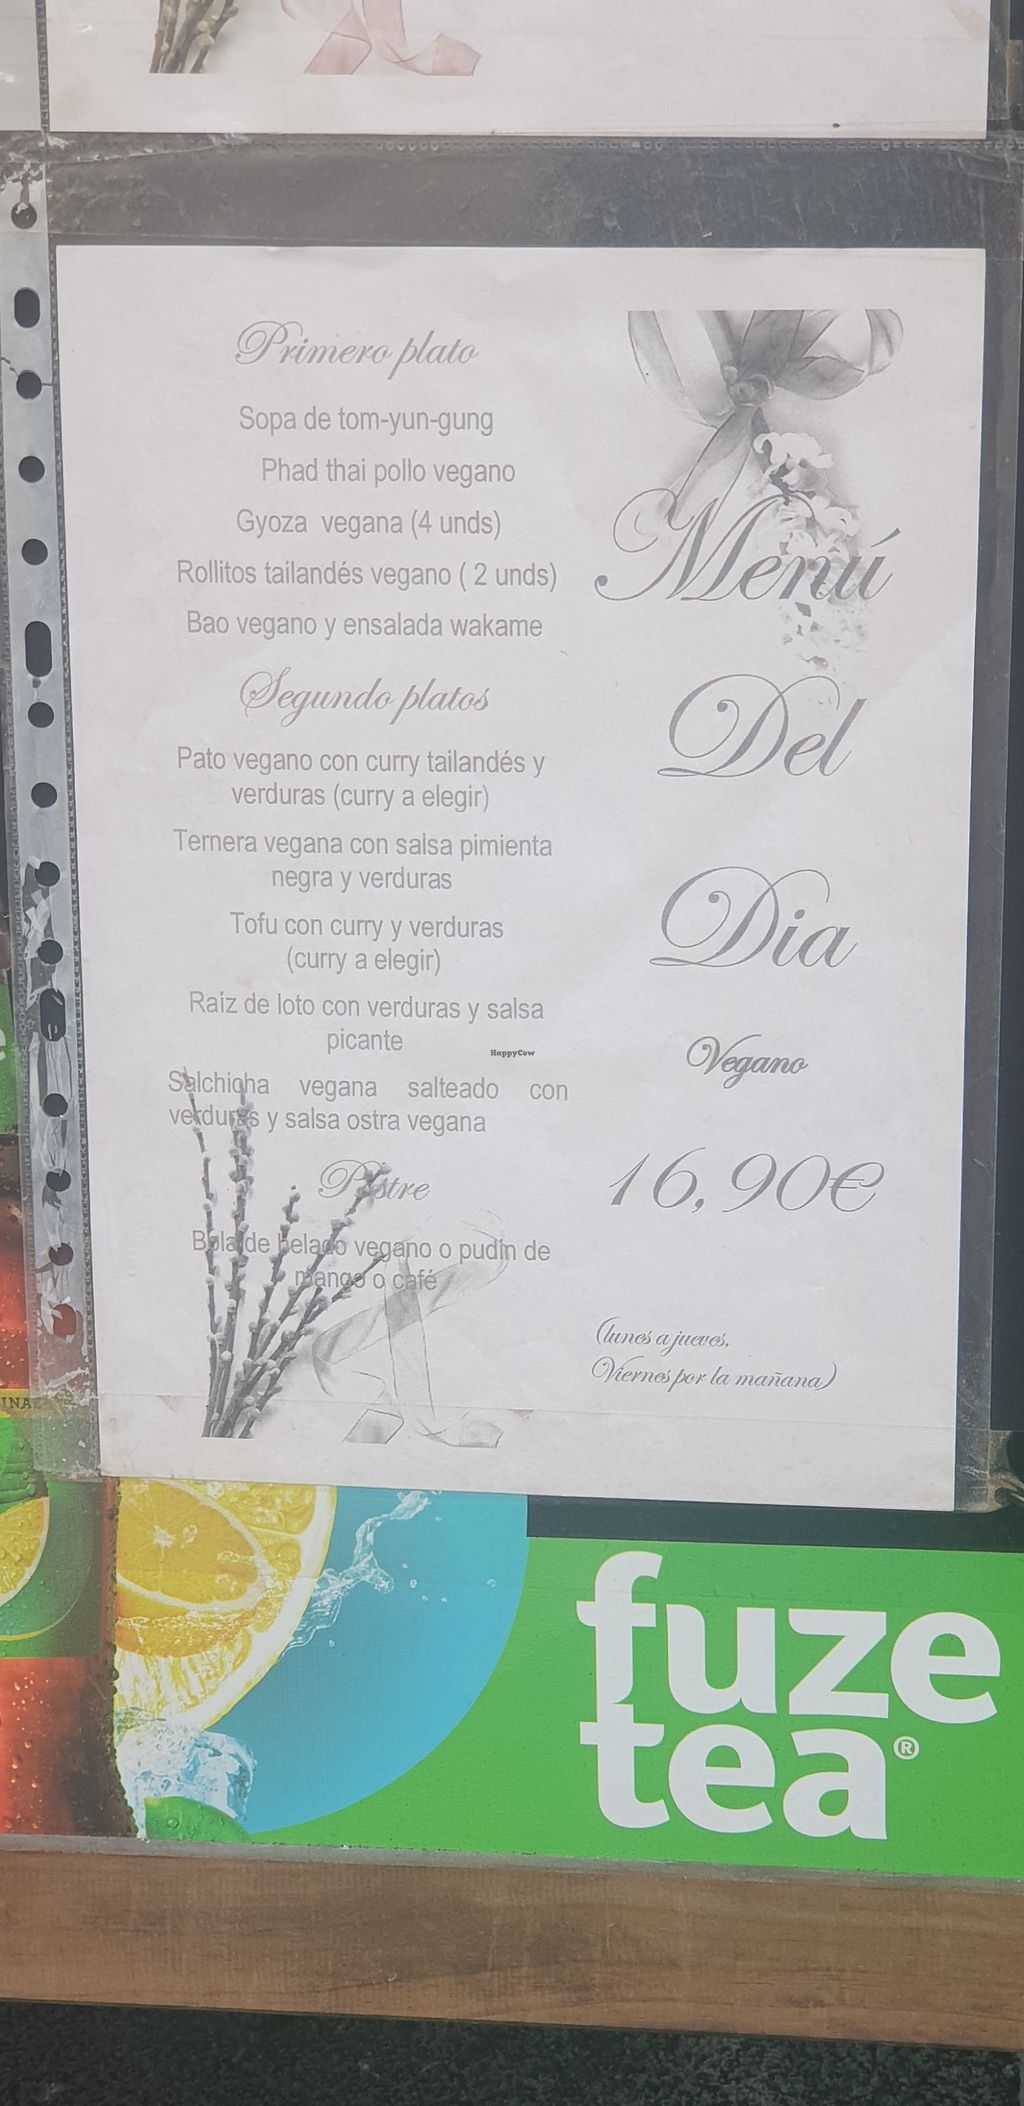 Primero plato
Sopa de tom-yun-gung
Phad thai pollo vegano
Gyoza vegana (4 unds)
Rollitos tailandés vegano ( 2 unds)
Bao vegano y ensalada wakame
Segundo platos
Pato vegano con curry tailandés y
verduras (curry a elegir)
Ternera vegana con salsa pimienta
negra y verduras
Tofu con curry y verduras
(curry a elegir)
Raíz de loto con verduras y salsa
picante
Salchicha vegana salteado con
verduras y salsa ostra vegana
Postre
Bola de helado vegano o pudin de
mango o café
Menú
Del
Dia
Vegano
16,90€
(lunes a jueves.
Viernes por la mañana)
HappyCow
INAL
fuze
tea®